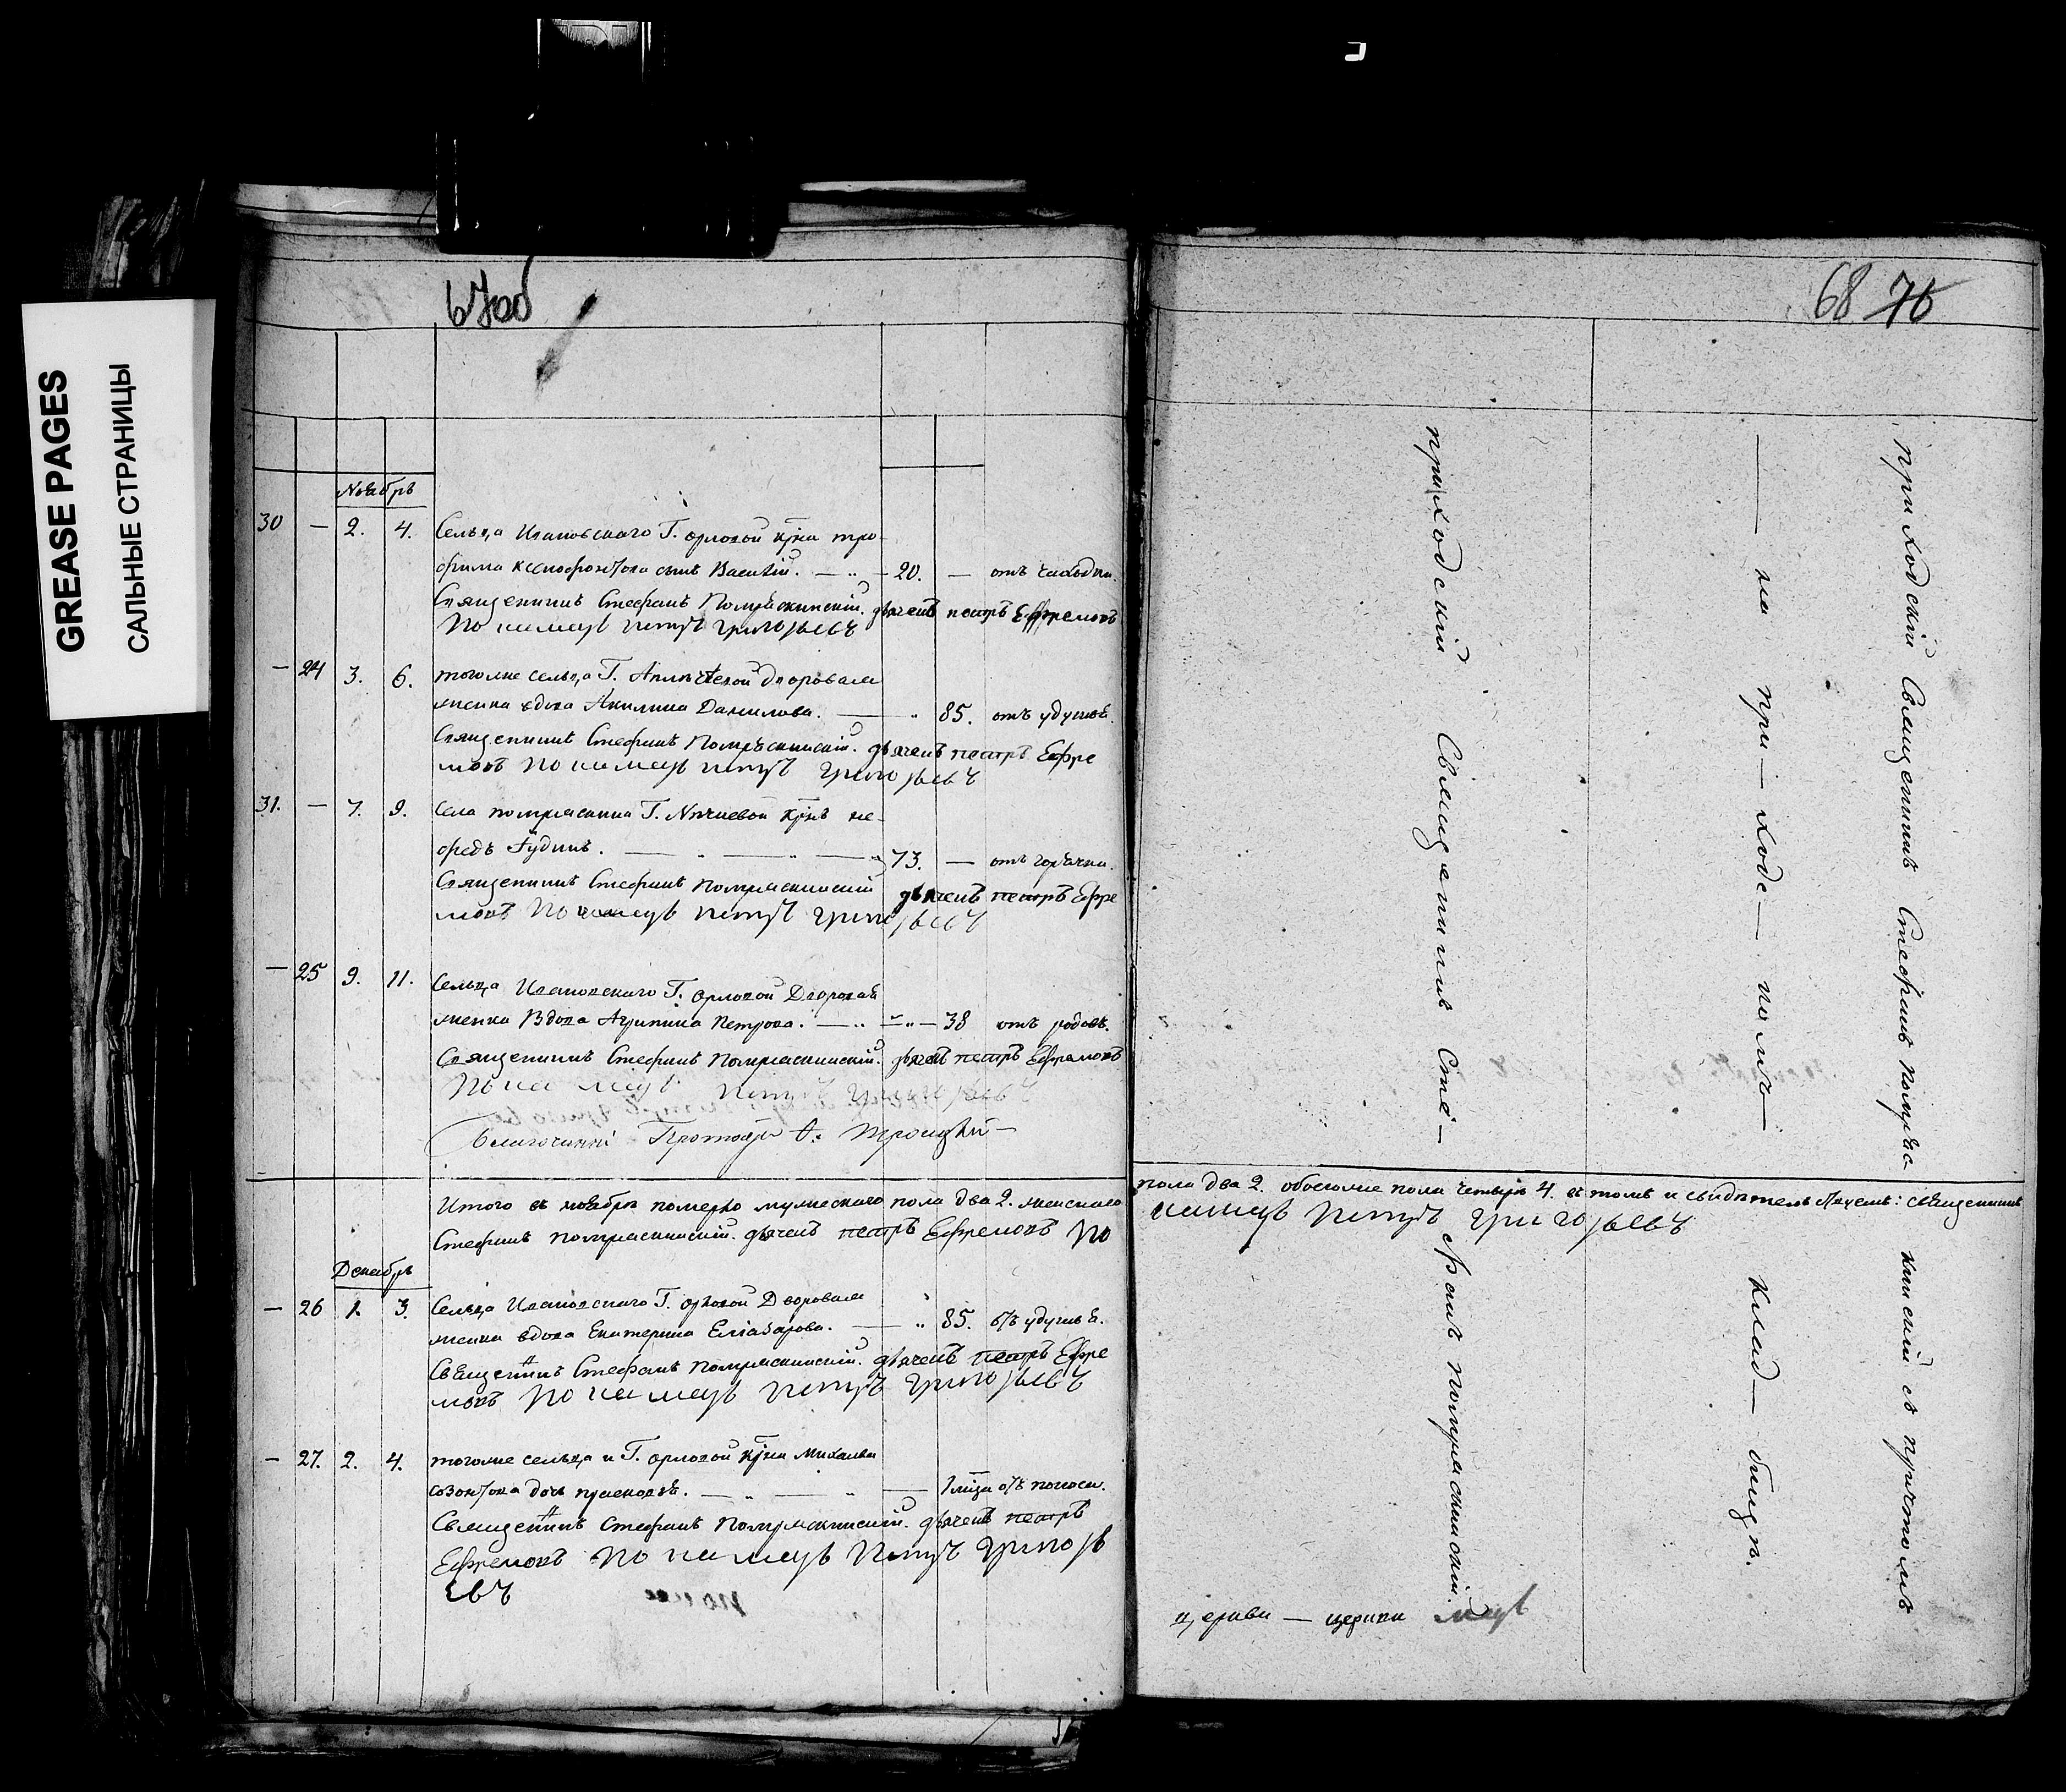 GREASE PAGES
САЛЬНЫЕ СТРАНИЦЫ
67об
Ноябрь
30 — 2. 4. Сельца Ивановского Г. Орловой крна тро-
фима Ксенофонтова сынъ Василій. — 20. — отъ чахотки.
Священникъ Стефанъ Помряскинскій. дьячекъ петръ Ефремовъ
Пономарь петръ григорьевъ
— 24 3. 6. тогоже сельца Г. дворовая
женка вдова Акилина Данилова. — 85. отъ удушья.
Священникъ Стефанъ Помряскинскій. дьячекъ петръ Ефре
мовъ Пономарь петръ григорьевъ
31. — 7. 9. Села помряскина Г. крнъ не-
федъ — 73. — отъ горячки.
Священникъ Стефанъ помряскинскій дьячекъ петръ Ефре
мовъ Пономарь петръ григорьевъ
— 25 9. 11. Сельца Ивановского Г. Орловой Дворовая
женка Вдова Агрипина Петрова. — 38 отъ родовъ.
Священникъ Стефанъ помряскинскій. дьячекъ петръ Ефремовъ
Пономарь петръ григорьевъ
Благочинный Троицкій
Итого въ ноябрѣ померло мужескаго пола два 2. женскаго
пола два 2. обоегоже пола четыре 4. въ томъ и свидѣтельствуемъ: священникъ
Стефанъ помряскинскій. дьячекъ петръ Ефремовъ По
намарь петръ григорьевъ
Декабрь
— 26 1. 3. Сельца Ивановского Г. Орловой Дворовая
женка вдова Екатерина — 85. отъ удушья.
Священникъ Стефанъ помряскинскій. дьячекъ петръ Ефре
мовъ Пономарь петръ григорьевъ
— 27. 2. 4. тогоже сельца и Г. Орловой крна Михаила
созонтова дочь — отъ поноса.
Священникъ Стефанъ помряскинскій. дьячекъ петръ
Ефремовъ Пономарь петръ григорь
евъ
68 76
приходскій Священникъ Стефанъ помряс кинскій съ причтомъ
— на при — ходс — помъ — клад — бищѣ.
приходскій Священникъ Сте — фанъ помряскинскій.
церкви — церкви марь